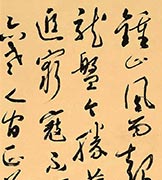 鍾山風雨起
龍盤今勝昔
追窮寇不可
亦老人間正道